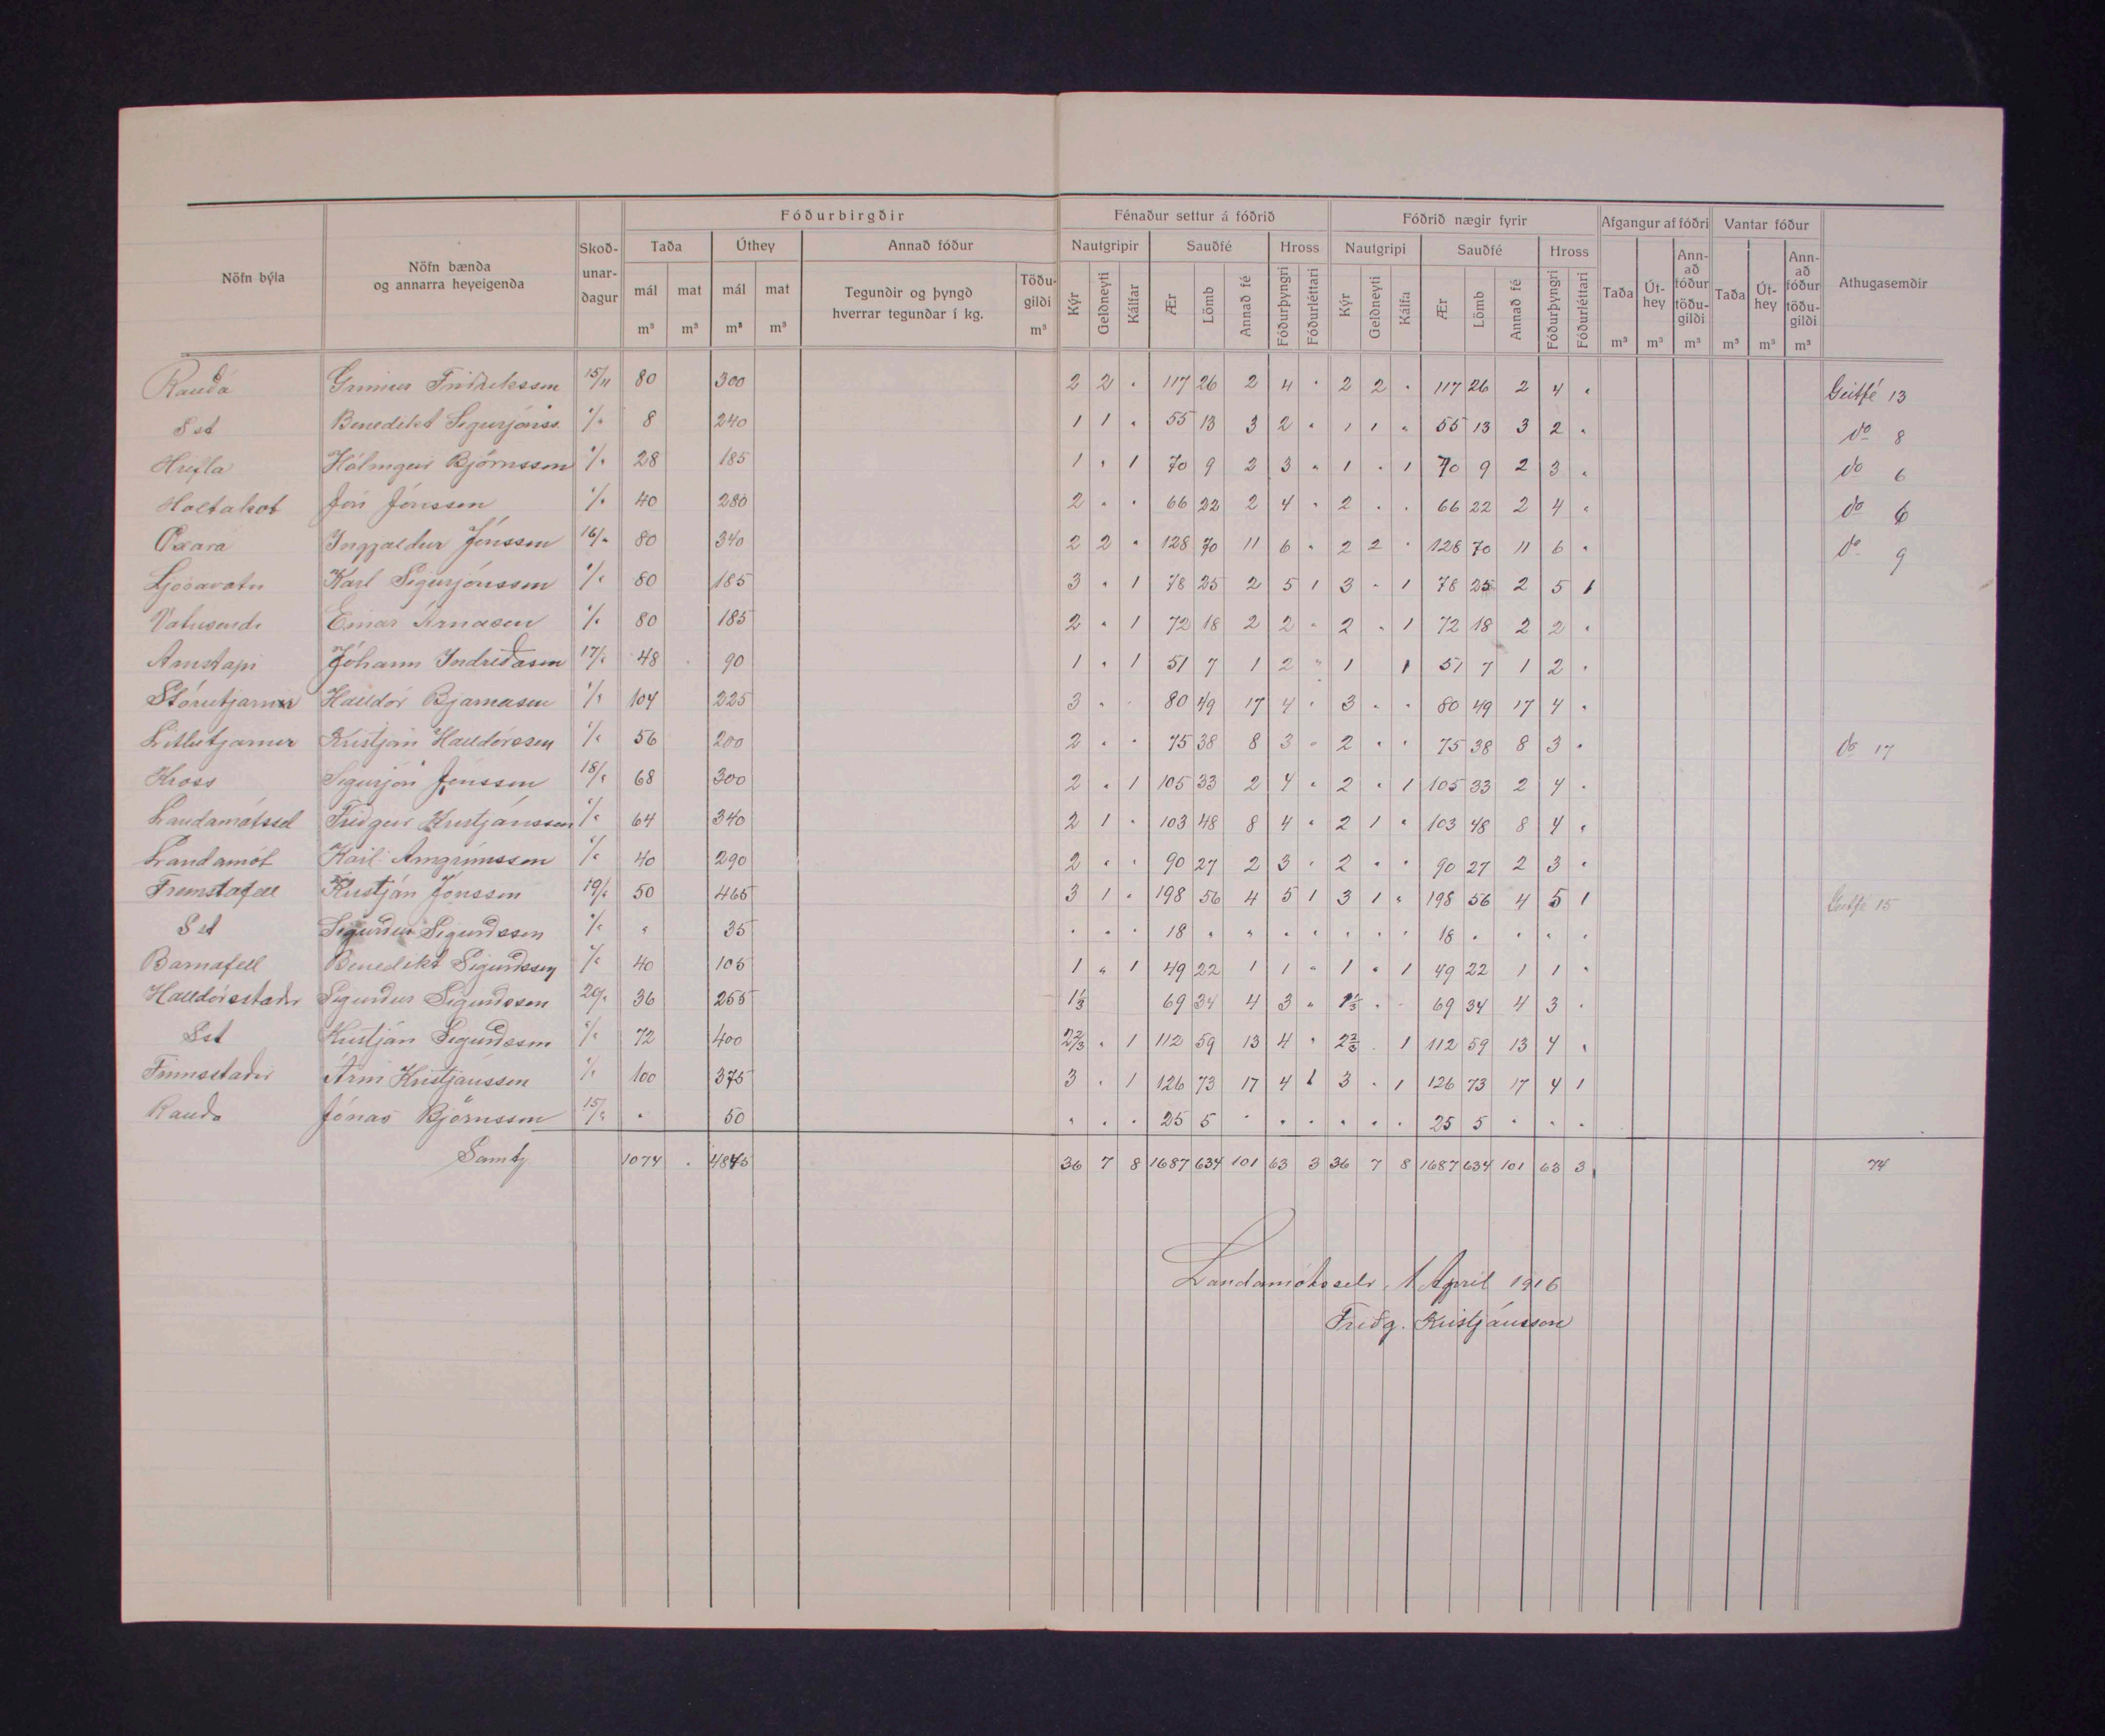 Fóðurbirgðir Fénaður settur á fóðrið Fóðrið nægir fyrir Afgangur af fóðri Vantar fóður
Nöfn býla Nöfn bænda og annarra heyeigenda Skoð-unar-dagur Taða Úthey Annað fóður Nautgripir Sauðfé Hross Nautgripi Sauðfé Hross Taða Út-hey Ann-að fóður töðu-gildi Taða Út-hey Ann-að fóður töðu-gildi Athugasemdir
mál mat mál mat Tegundir og þyngd hverrar tegundar í kg. Töðu-gildi Kýr Geldneyti Kálfar Ær Lömb Annað fé Fóðurþyngri Fóðurléttari Kýr Geldneyti Kálfa Ær Lömb Annað fé Fóðurþyngri Fóðurléttari
m³ m³ m³ m³ m³ m³ m³ m³ m³ m³ m³
Rauðá Grímur Friðriksson 15/11 80 300 2 2 " 117 26 2 4 " 2 2 " 117 26 2 4 " Geitfé 13
Sst Benedikt Sigurjónss "/" 8 240 1 1 " 55 13 3 2 " 1 1 " 55 13 3 2 " do 8
Hrifla Hólmgeir Björnsson "/" 28 185 1 " 1 70 9 2 3 " 1 " 1 70 9 2 3 " do 6
Holtakot Jón Jónsson "/" 40 280 2 " " 66 22 2 4 " 2 " " 66 22 2 4 " do 6
Öxará Ingjaldur Jónsson 16/" 80 340 2 2 " 128 70 11 6 " 2 2 " 128 70 11 6 " do 9
Ljósavatn Karl Sigurjónsson "/" 80 185 3 " 1 78 25 2 5 1 3 " 1 78 25 2 5 1
Vatnsendi Einar Árnason "/" 80 185 2 " 1 72 18 2 2 " 2 " 1 72 18 2 2 "
Arnstapi Jóhann Indriðason 17/" 48 90 1 " 1 51 7 1 2 " 1 1 51 7 1 2 "
Stórutjarnir Halldór Bjarnason "/" 104 225 3 " " 80 49 17 4 " 3 " " 80 49 17 4 "
Litlutjarnir Kristján Halldórsson "/" 56 200 2 " " 75 38 8 3 " 2 " " 75 38 8 3 " do 17
Kross Sigurjón Jónsson 18/" 68 300 2 " 1 105 33 2 4 " 2 " 1 105 33 2 4 "
Landamótssel Friðgeir Kristjánsson "/" 64 340 2 1 " 103 48 8 4 " 2 1 " 103 48 8 4 "
Landamót Karl Arngrímsson "/" 40 290 2 " " 90 27 2 3 " 2 " " 90 27 2 3 "
Fremstafell Kristján Jónsson 19/" 50 465 3 1 " 198 56 4 5 1 3 1 " 198 56 4 5 1 Geitfé 15
Sst Sigurður Sigurðsson "/" " 35 " " " 18 " " " " " " " 18 " " " "
Barnafell Benedikt Sigurðsson "/" 40 105 1 " 1 49 22 1 1 " 1 " 1 49 22 1 1 "
Halldórsstaðir Sigurður Sigurðsson 20/" 36 255 1⅓ 69 34 4 3 " 1⅓ " " 69 34 4 3 "
Sst Kristján Sigurðsson "/" 72 400 2⅔ " 1 112 59 13 4 " 2⅔ " 1 112 59 13 4 "
Finnsstaðir Árni Kristjánsson "/" 100 375 3 " 1 126 73 17 4 1 3 " 1 126 73 17 4 1
Rauðá Jónas Björnsson 15/" " 50 " " " 25 5 " " " " " " 25 5 " " "
Samtg 1074 " 4845 36 7 8 1687 634 101 63 3 36 7 8 1687 634 101 63 3 74
Landamótsseli, 1 Apríl 1916
Friðg. Kristjánsson